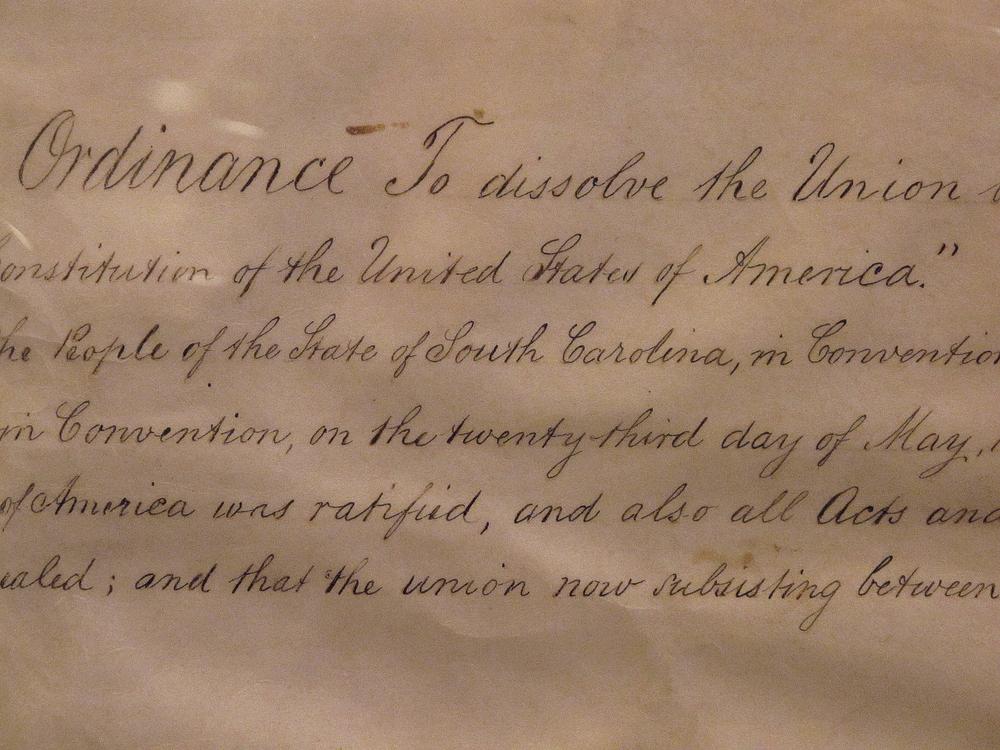 Ordinance To dissolve the Union
onstitution of the United States of America."
he People of the State of South Carolina, in Convention
in Convention, on the twenty third day of May,
of America was ratified, and also all Acts and
ealed; and that the union now subsisting between